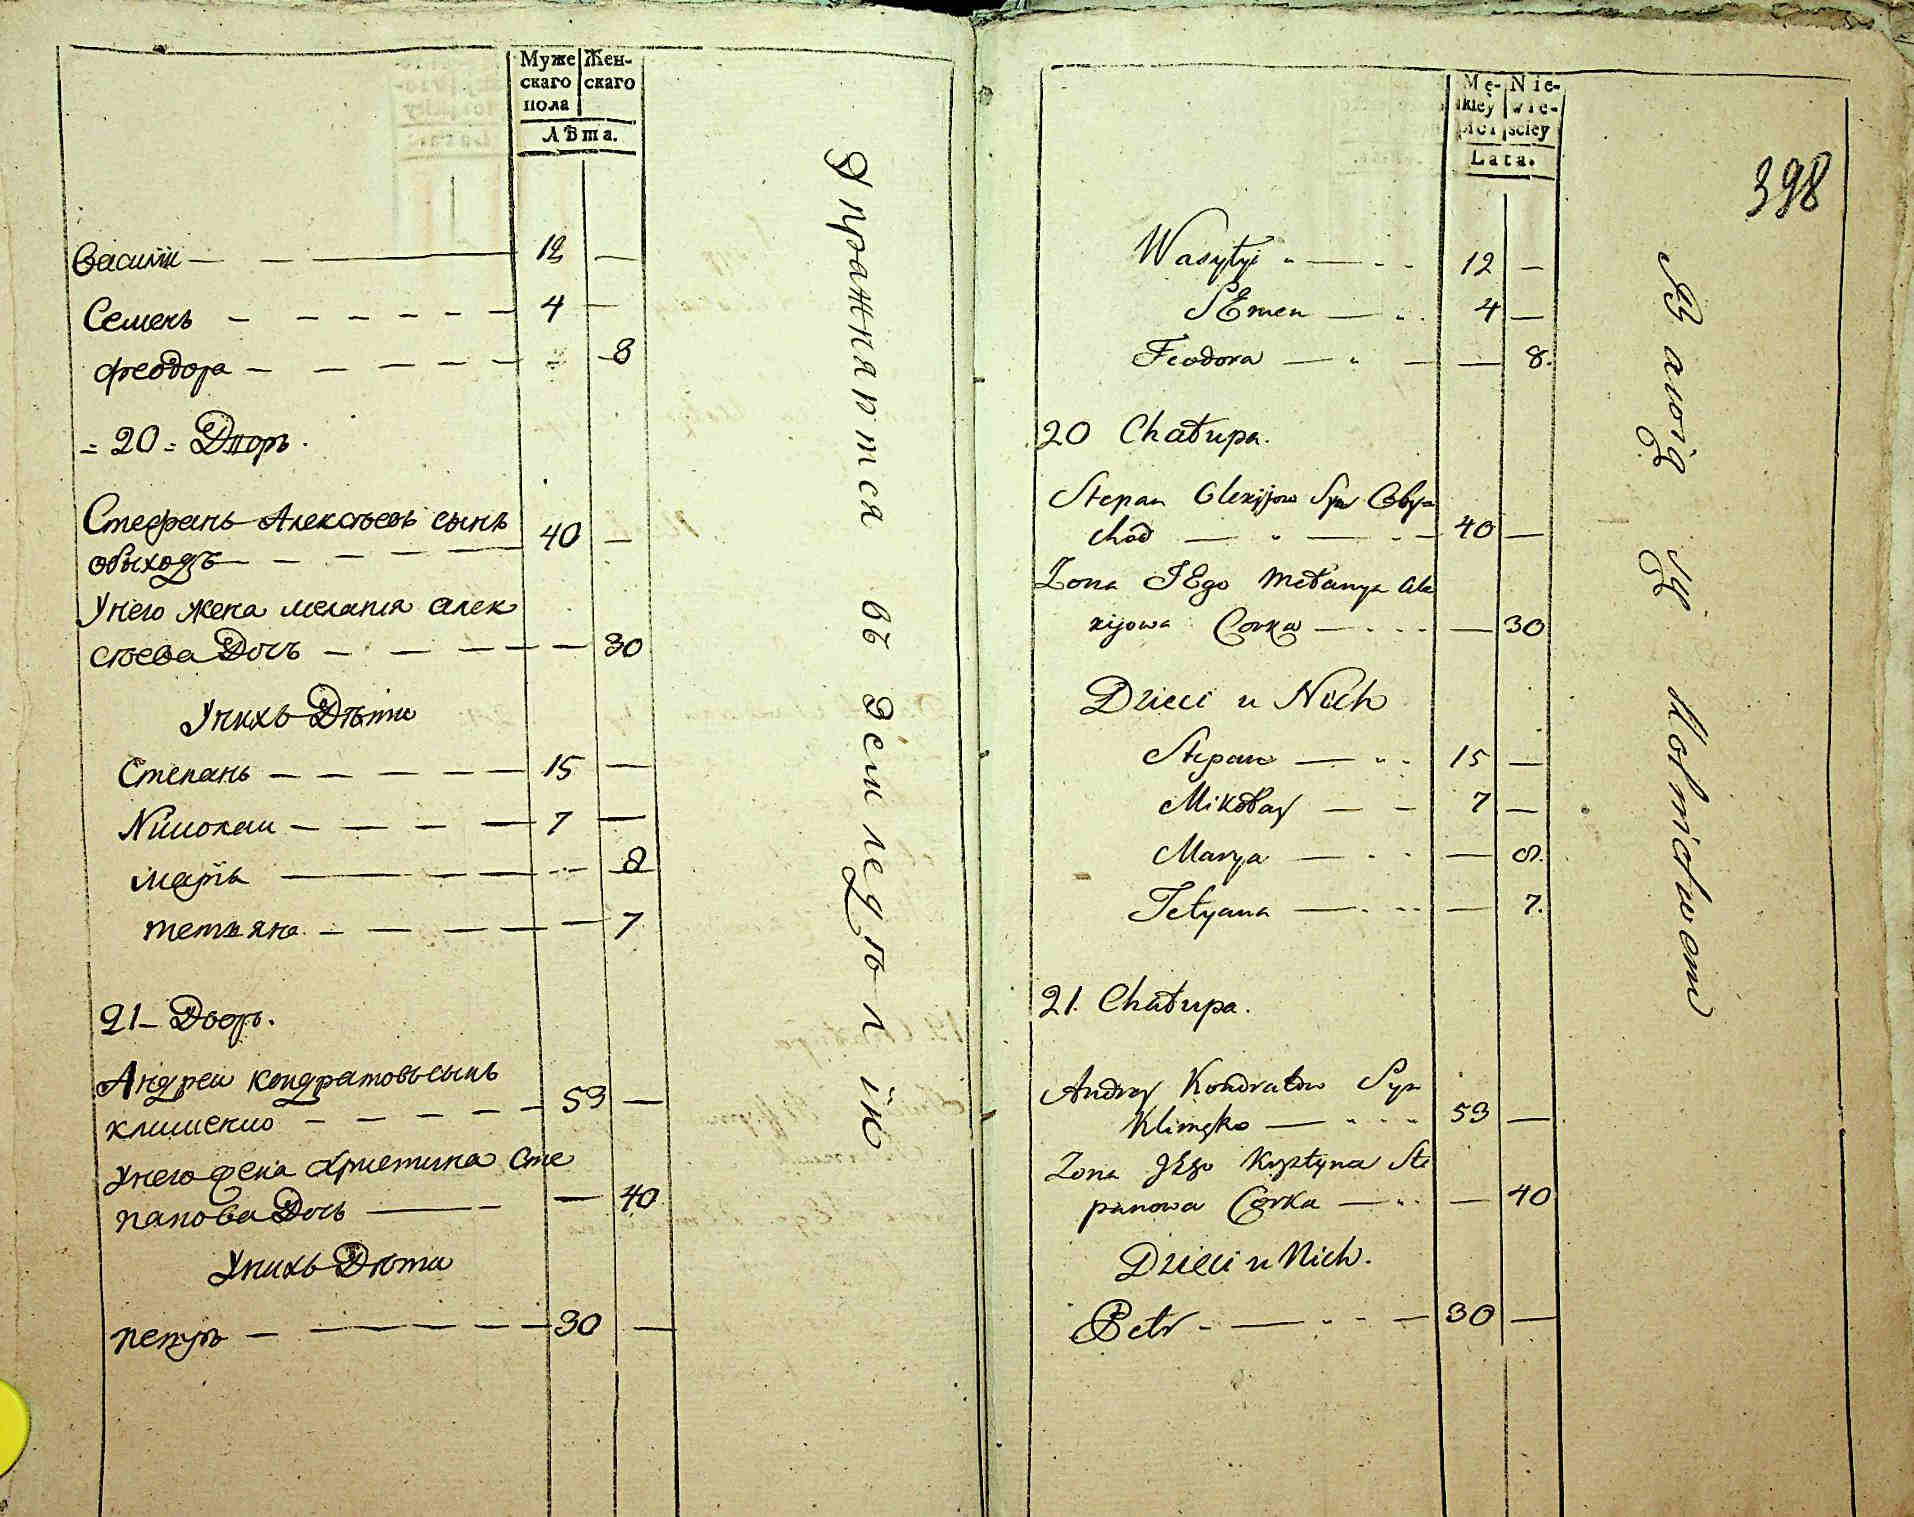 Муже Жен-
скаго скаго
пола
Лѣта.
Василiй 12 —
Семенъ 4 —
феодора 8
= 20 = Дворъ.
Стефанъ Алексѣевъ сынъ
обыходъ 40 —
Унего жена мелания Алек
сѣева Дочь — 30
Унихъ Дѣти
Степанъ 15 —
Николаи 7 —
марья 8
тетьяна — 7
21 — Дворъ.
Андреи кондратовъ сынъ
клименко 53 —
Унего жена христина Сте
панова Дочь — 40
Унихъ Дѣти
петръ 30 —
Упражняртся въ Земледѣлiй
Mę- Nie-
kiey wie-
płci sciey
Lata.
398
Wasyłyi 12 —
SEmen 4 —
Feodora — 8.
20 Chałupa.
Stepan Olexijow Syn Oby-
chod 40 —
Zona JEgo Mełanya Ale
xijowa Corka — 30
Dzieci u Nich
Stepan 15 —
Mikołay 7 —
Marya — 8.
Tetyana — 7.
21. Chałupa.
Andrey Kondratow Syn
Klimęko 53 —
Zona JEgo Krystyna Ste
panowa Corka — 40
Dzieci u Nich.
Petr 30 —
Bawią Się Rolnictwem